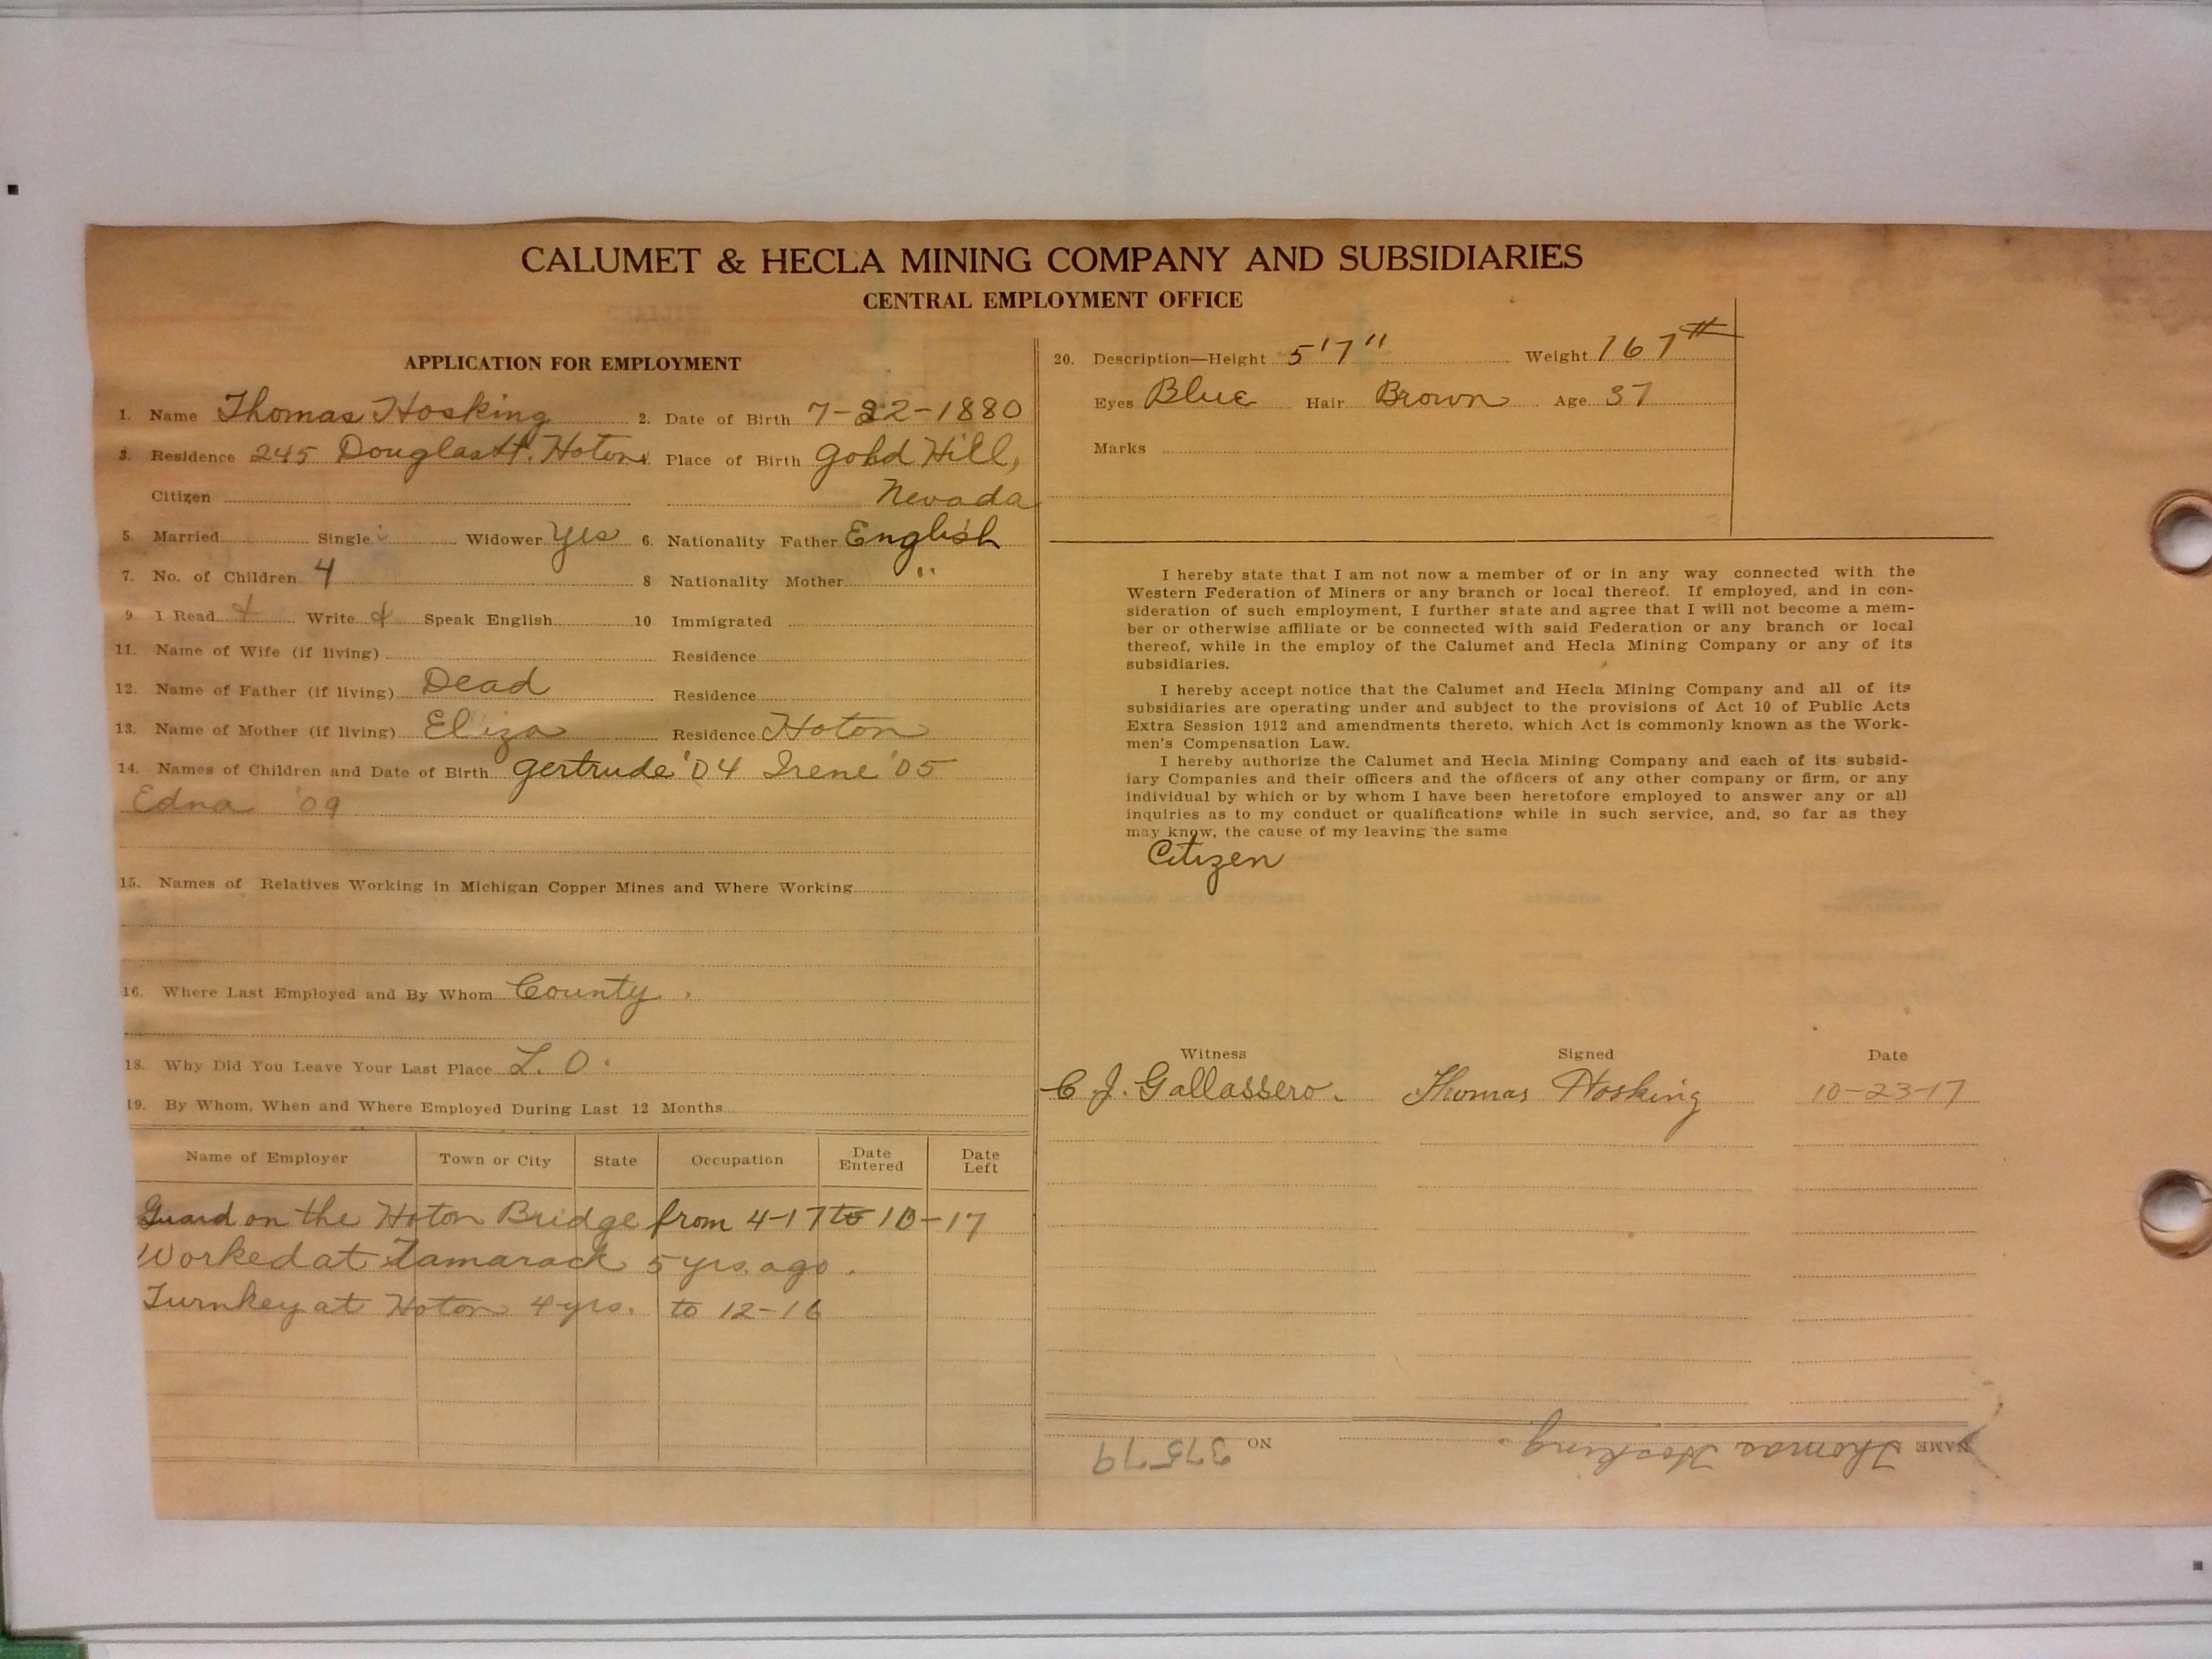 CALUMET & HECLA MINING COMPANY AND SUBSIDIARIES
CENTRAL EMPLOYMENT OFFICE
APPLICATION FOR EMPLOYMENT
1. Name Thomas Hosking 2. Date of Birth 7-22-1880
3. Residence 245 Douglas St. Hoton 4. Place of Birth Gold Hill,
Citizen Nevada
5. Married Single Widower Yes 6. Nationality Father English
7. No. of Children 4 8 Nationality Mother "
9 I Read Write Speak English 10 Immigrated
11. Name of Wife (if living) Residence
12. Name of Father (if living) Dead Residence
13. Name of Mother (if living) Eliza Residence Hoton
14. Names of Children and Date of Birth Gertrude '04 Irene '05
Edna '09
15. Names of Relatives Working in Michigan Copper Mines and Where Working
16. Where Last Employed and By Whom County.
18. Why Did You Leave Your Last Place L. O.
19. By Whom, When and Where Employed During Last 12 Months
Name of Employer Town or City State Occupation Date Entered Date Left
Guard on the Hoton Bridge from 4-17 to 10-17
Worked at Tamarack 5 yrs. ago.
Turnkey at Hoton 4 yrs. to 12-16
20. Description—Height 5'7" Weight 167#
Eyes Blue Hair Brown Age 37
Marks
I hereby state that I am not now a member of or in any way connected with the
Western Federation of Miners or any branch or local thereof. If employed, and in con-
sideration of such employment, I further state and agree that I will not become a mem-
ber or otherwise affiliate or be connected with said Federation or any branch or local
thereof, while in the employ of the Calumet and Hecla Mining Company or any of its
subsidiaries.
I hereby accept notice that the Calumet and Hecla Mining Company and all of its
subsidiaries are operating under and subject to the provisions of Act 10 of Public Acts
Extra Session 1912 and amendments thereto, which Act is commonly known as the Work-
men's Compensation Law.
I hereby authorize the Calumet and Hecla Mining Company and each of its subsid-
iary Companies and their officers and the officers of any other company or firm, or any
individual by which or by whom I have been heretofore employed to answer any or all
inquiries as to my conduct or qualifications while in such service, and, so far as they
may know, the cause of my leaving the same
Citizen
Witness Signed Date
C. J. Gallassero. Thomas Hosking 10-23-17
NAME Thomas Hosking. NO 37579